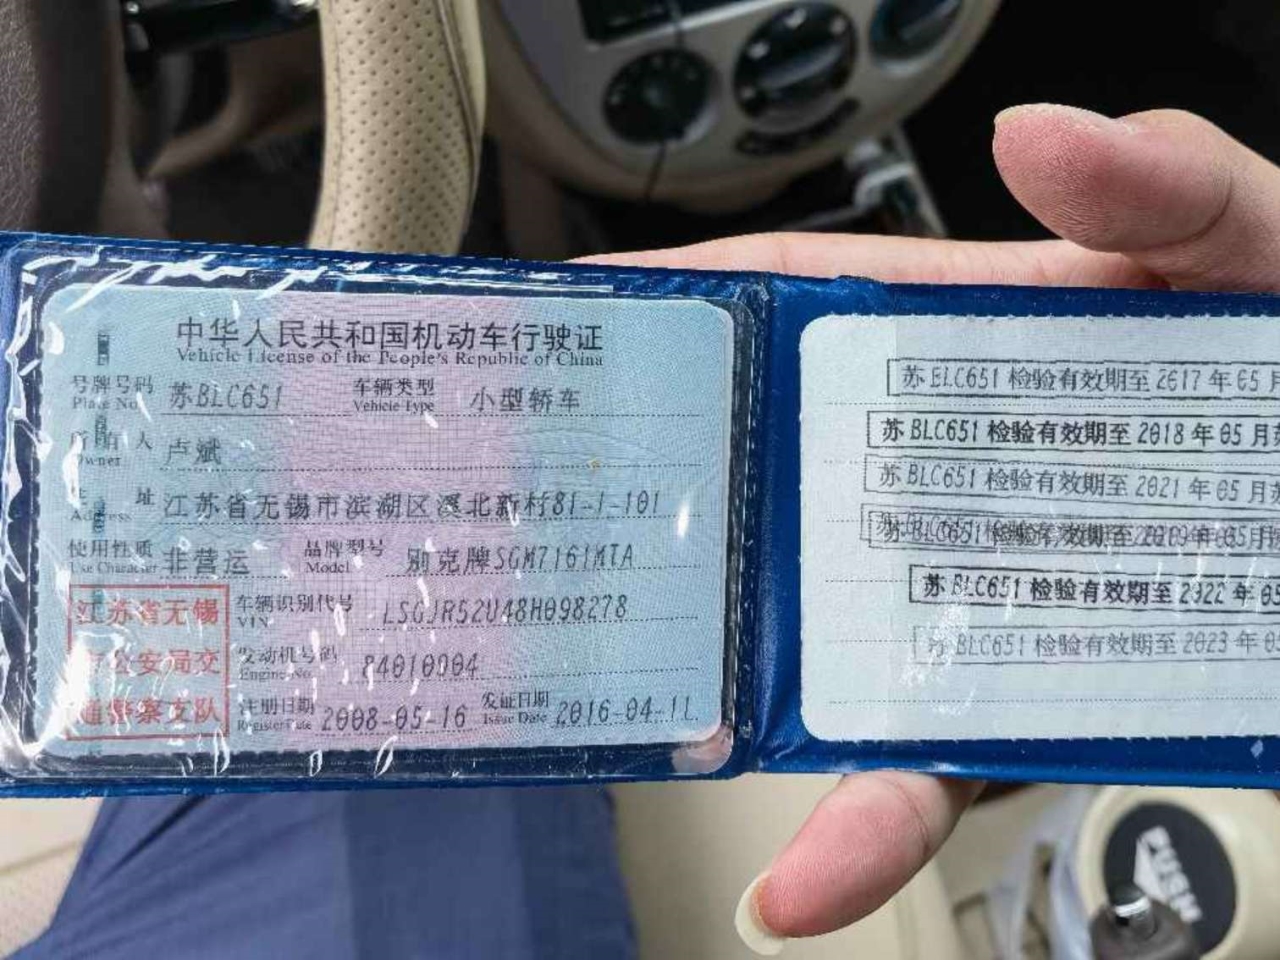 中华人民共和国机动车行驶证
Vehicle License of the People's Republic of China
号牌号码 苏BLC651 车辆类型 小型轿车
Plate No. Vehicle Type
所有人 卢斌
Owner
住址 江苏省无锡市滨湖区溪北新村81-1-101
Address
使用性质 非营运 品牌型号 别克牌SGM7161MTA
Use Character Model
江苏省无锡 车辆识别代号 LSGJR52U48H098278
VIN
市公安局交 发动机号码 84010004
Engine No.
通警察支队 注册日期 2008-05-16 发证日期 2016-04-11
Register Date Issue Date
苏BLC651 检验有效期至 2017 年 05 月
苏BLC651 检验有效期至 2018 年 05 月苏
苏BLC651 检验有效期至 2021 年 05 月苏
苏BLC651 检验有效期至 2019 年 05 月
苏BLC651 检验有效期至 2022 年
苏BLC651 检验有效期至 2023 年
PUSH